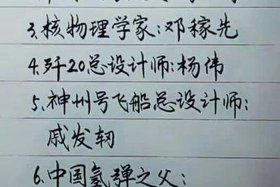 3.核物理学家:邓稼先
4.歼20总设计师:杨伟
5.神州号飞船总设计师:
戚发轫
6.中国氢弹之父: